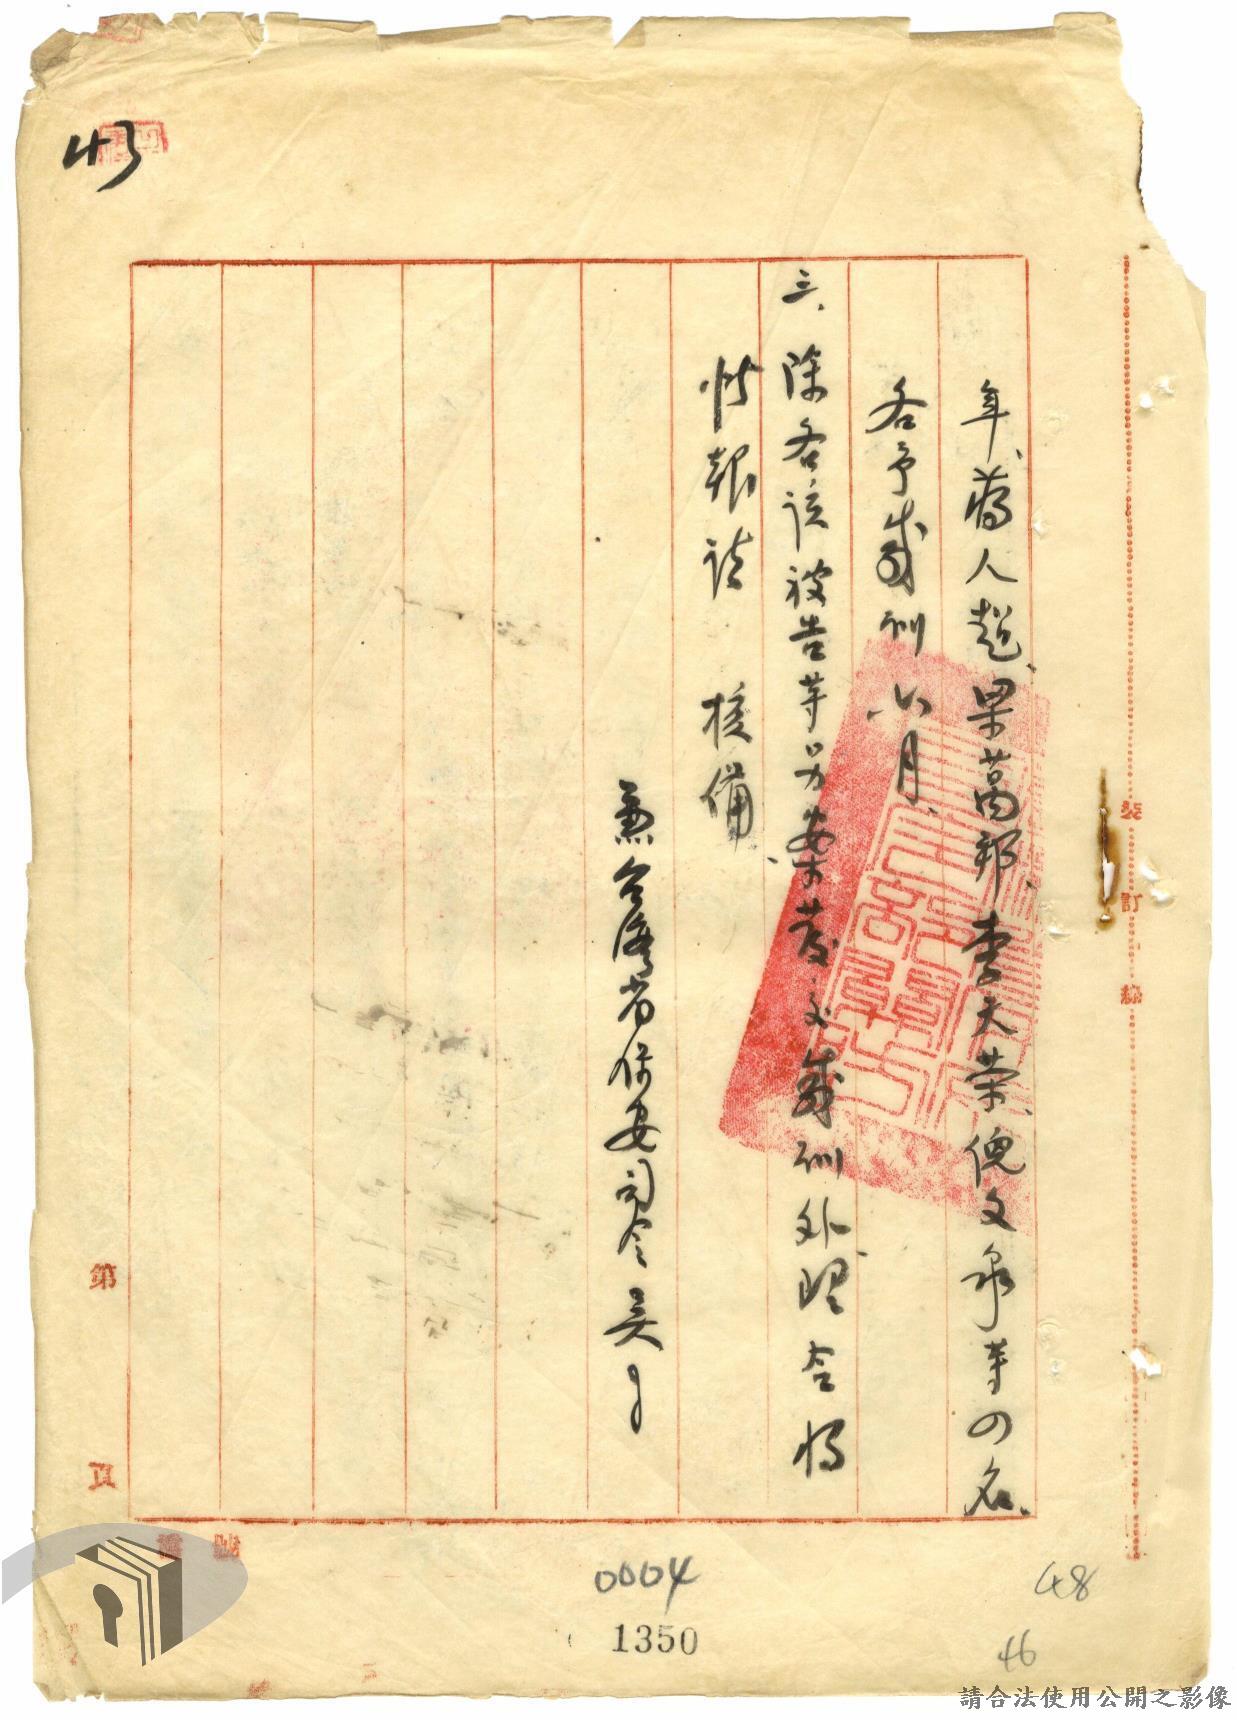 43
年、蔣人趙、梁萬邦、李天榮、倪文泉等四名、
各予感訓六月、
三、除各該被告等另案發交感訓外、理合將
情報請 核備、
兼台灣省保安司令吳
裝
訂
線
第
頁
0004
1350
48
46
請合法使用公開之影像